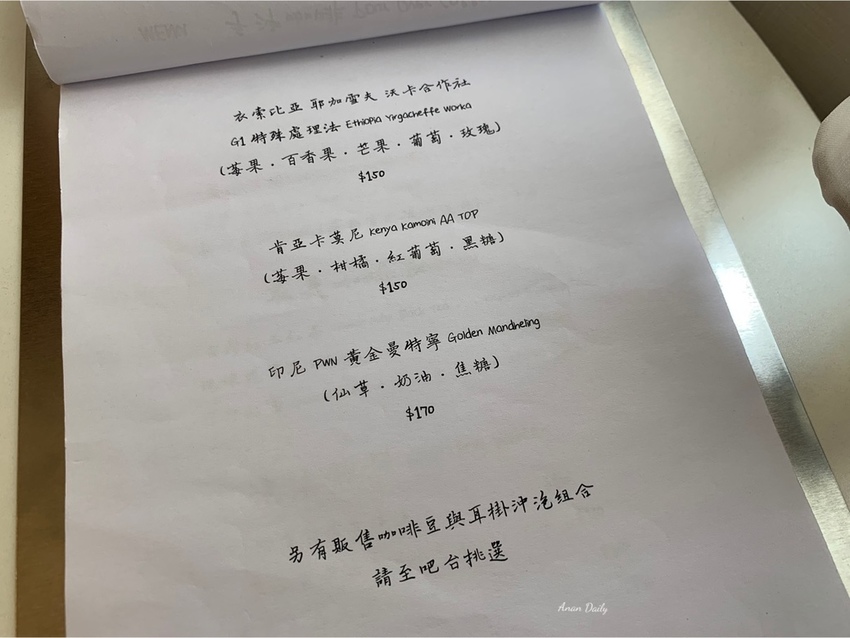 衣索比亞 耶加雪夫 沃卡合作社
G1 特殊處理法 Ethiopia Yirgacheffe Worka
(莓果．百香果．芒果．葡萄．玫瑰)
$150
肯亞卡莫尼 Kenya Kamoini AA TOP
(莓果．柑橘．紅葡萄．黑糖)
$150
印尼 PWN 黃金曼特寧 Golden Mandheling
(仙草．奶油．焦糖)
$170
另有販售咖啡豆與耳掛沖泡組合
請至吧台挑選
Anan Daily